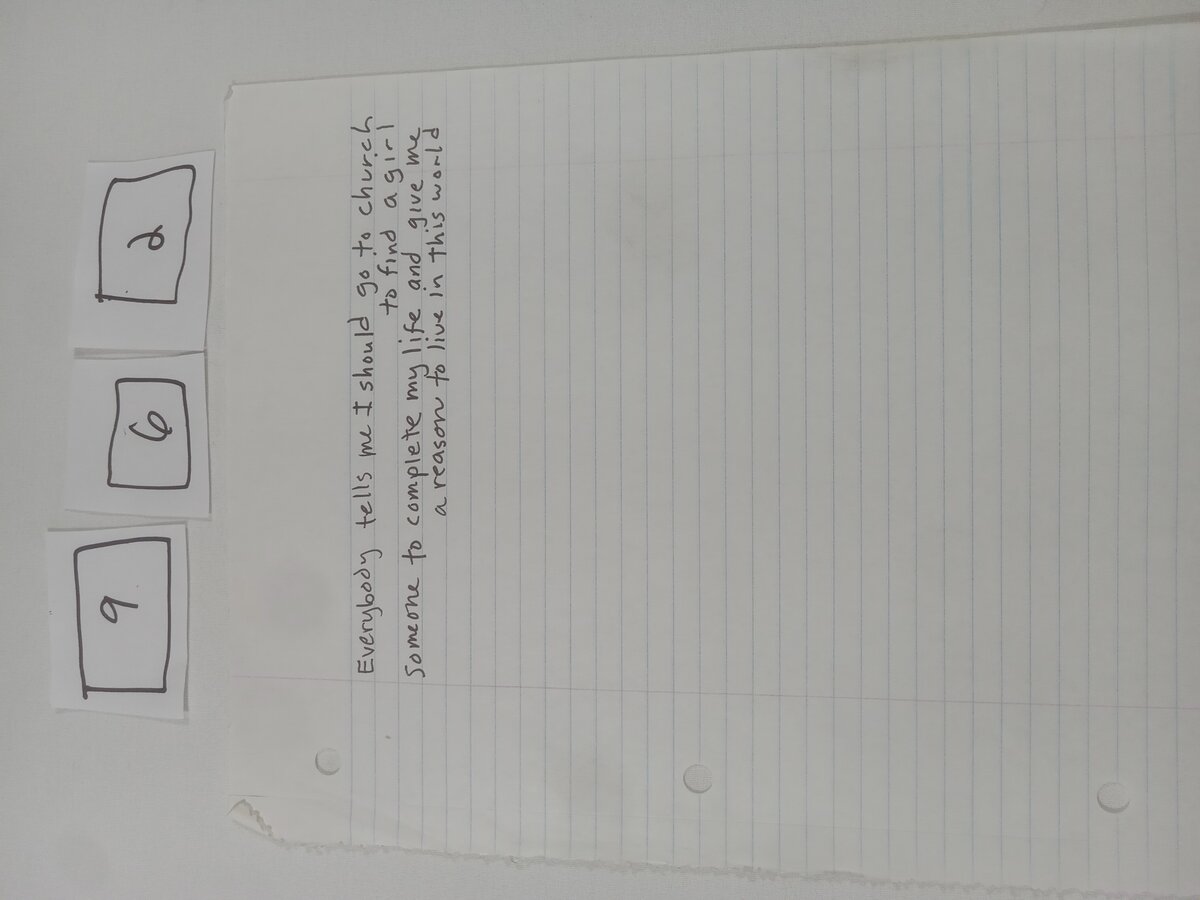 9 6 2
Everybody tells me I should go to church
to find a girl
Someone to complete my life and give me
a reason to live in this world